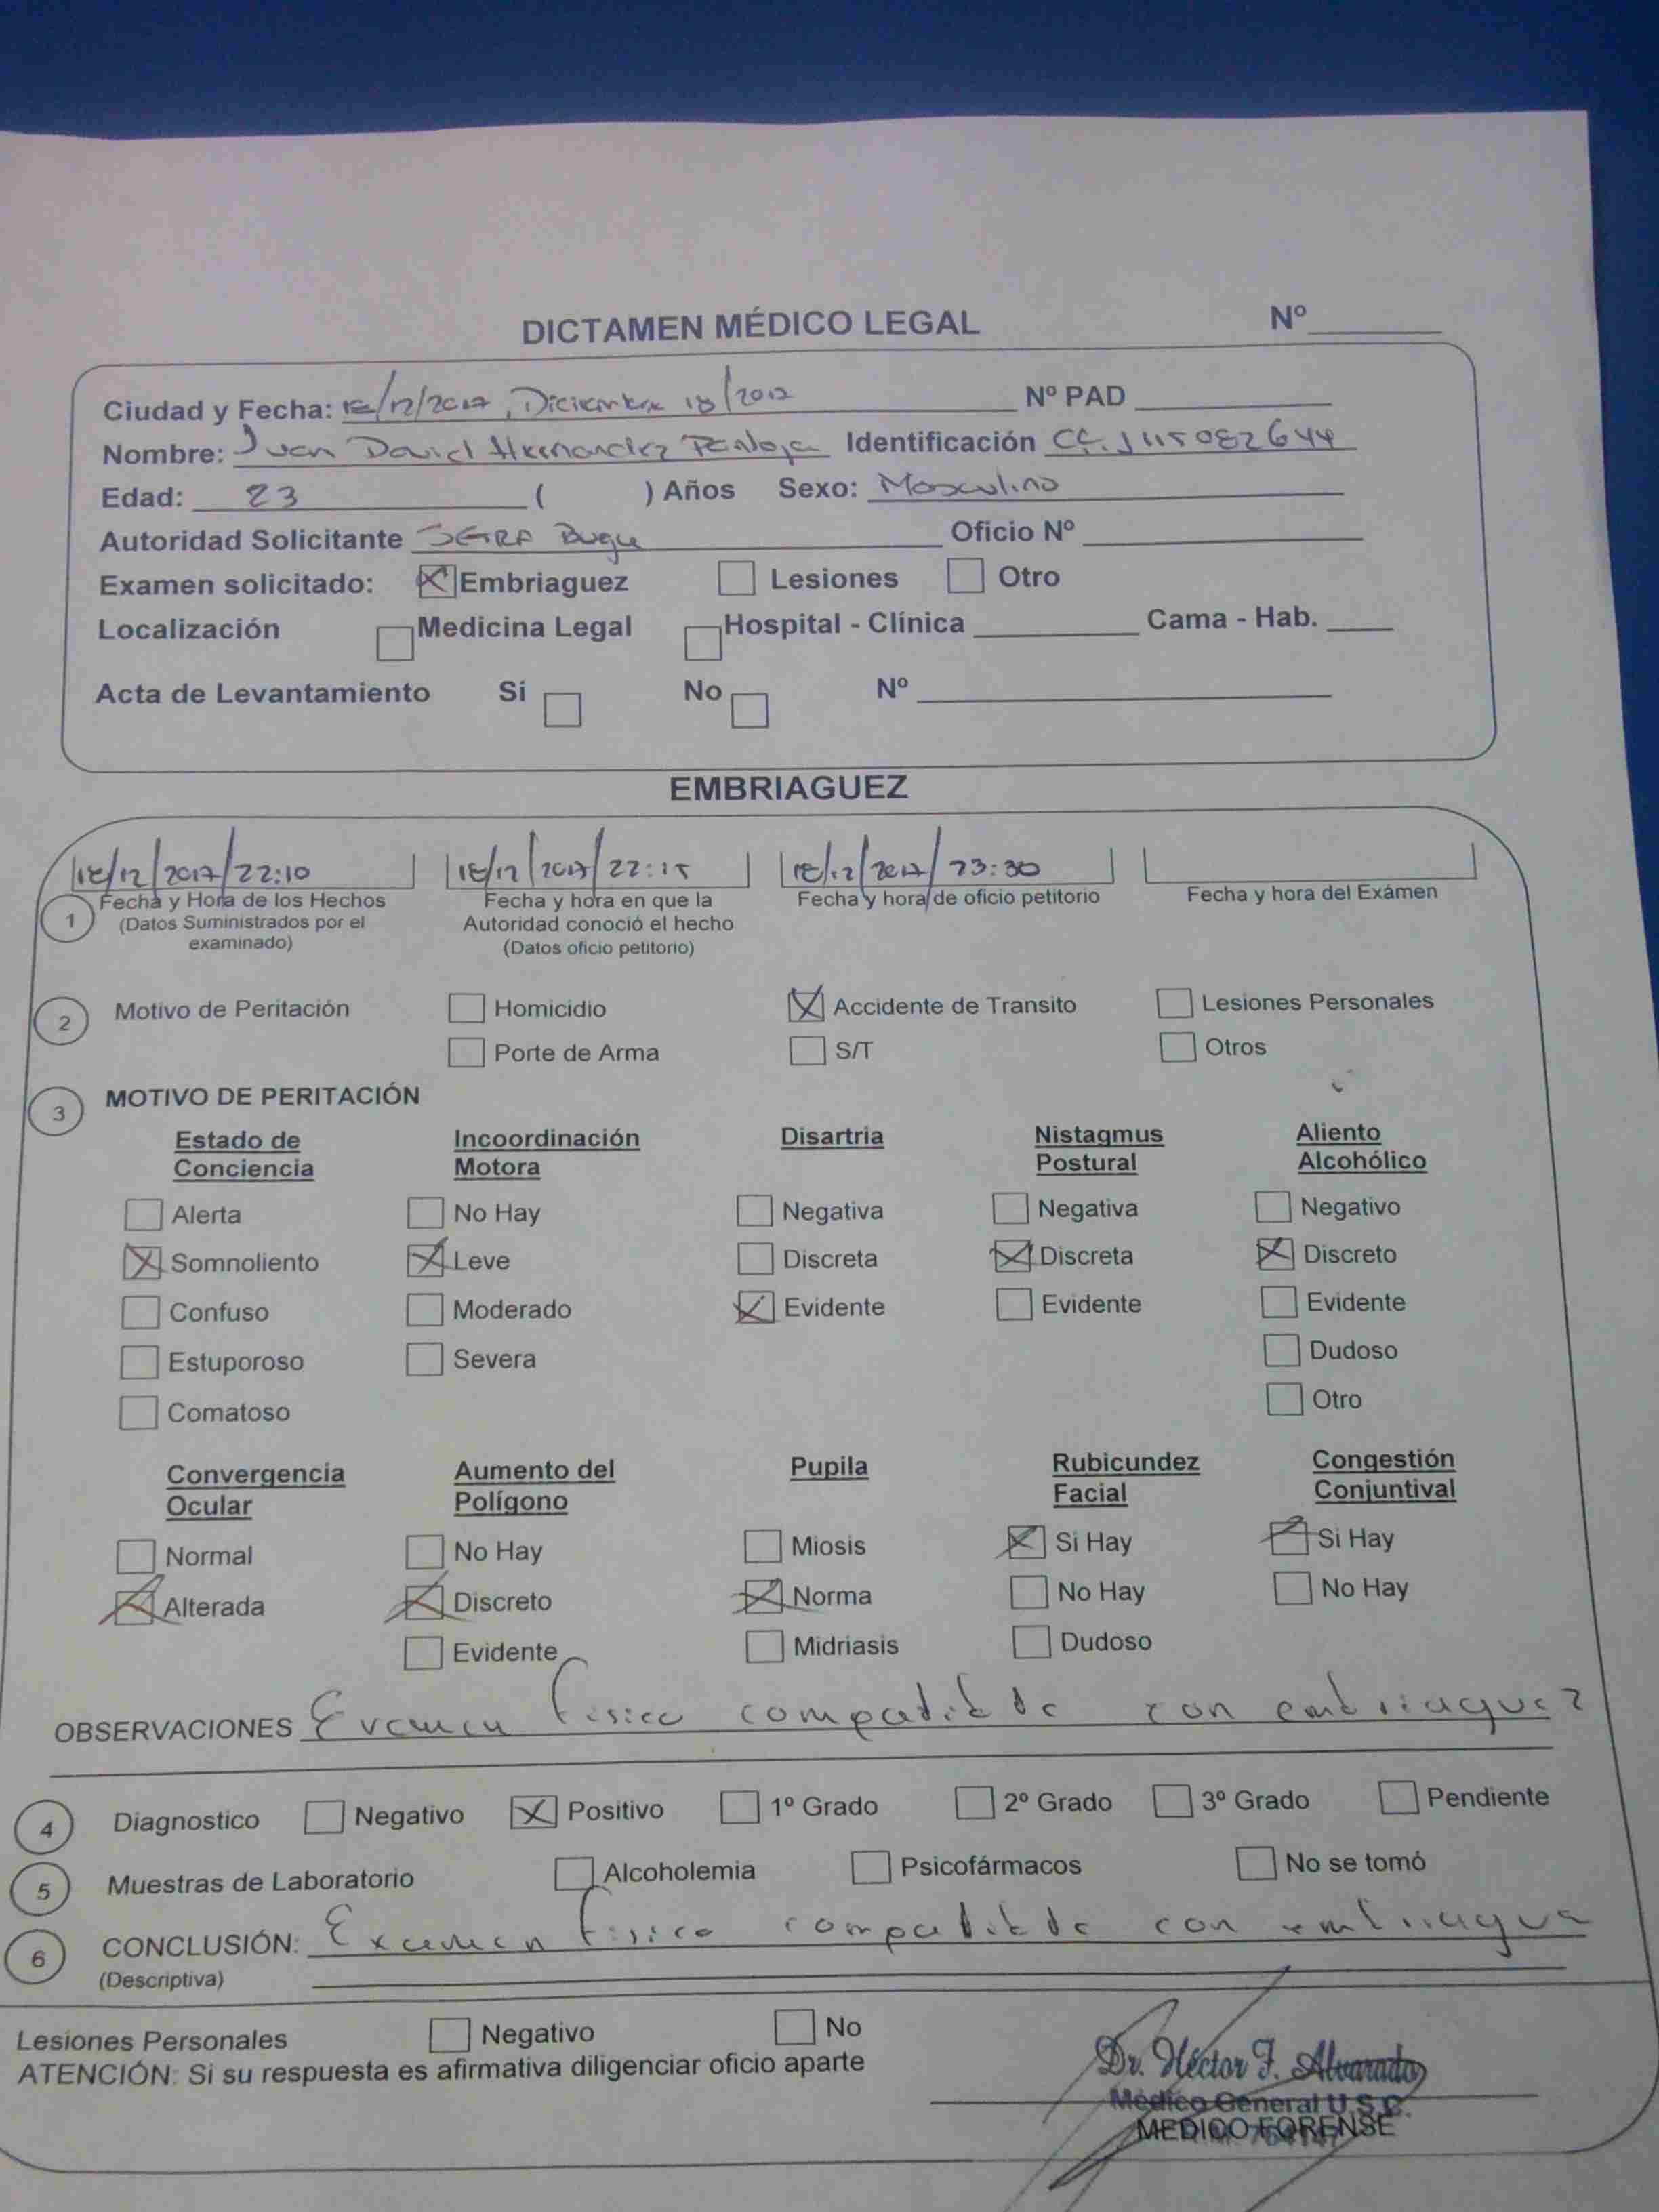 DICTAMEN MÉDICO LEGAL Nº
Ciudad y Fecha: 18/12/2017, Diciembre 18/2017 Nº PAD
Nombre: Juan David Hernandez Pantoja Identificación CC. 1115082644
Edad: 23 ( ) Años Sexo: Masculino
Autoridad Solicitante SETRA Buga Oficio Nº
Examen solicitado: X Embriaguez Lesiones Otro
Localización Medicina Legal Hospital - Clínica Cama - Hab.
Acta de Levantamiento Si No Nº
EMBRIAGUEZ
18/12/2017/22:10 18/12/2017/22:15 18/12/2017/23:30
1 Fecha y Hora de los Hechos Fecha y hora en que la Fecha y hora de oficio petitorio Fecha y hora del Exámen
(Datos Suministrados por el Autoridad conoció el hecho
examinado) (Datos oficio petitorio)
2 Motivo de Peritación Homicidio X Accidente de Transito Lesiones Personales
Porte de Arma S/T Otros
3 MOTIVO DE PERITACIÓN
Estado de Incoordinación Disartria Nistagmus Aliento
Conciencia Motora Postural Alcohólico
Alerta No Hay Negativa Negativa Negativo
X Somnoliento X Leve Discreta X Discreta X Discreto
Confuso Moderado X Evidente Evidente Evidente
Estuporoso Severa Dudoso
Comatoso Otro
Convergencia Aumento del Pupila Rubicundez Congestión
Ocular Polígono Facial Conjuntival
Normal No Hay Miosis X Si Hay X Si Hay
X Alterada X Discreto X Norma No Hay No Hay
Evidente Midriasis Dudoso
OBSERVACIONES Examen fisico compatible con embriaguez
4 Diagnostico Negativo X Positivo 1º Grado 2º Grado 3º Grado Pendiente
5 Muestras de Laboratorio Alcoholemia Psicofármacos No se tomó
6 CONCLUSIÓN: Examen fisico compatible con embriagua
(Descriptiva)
Lesiones Personales Negativo No
ATENCIÓN: Si su respuesta es afirmativa diligenciar oficio aparte
Dr. Héctor F. Alvarado
Médico General U.S.C.
MEDICO FORENSE